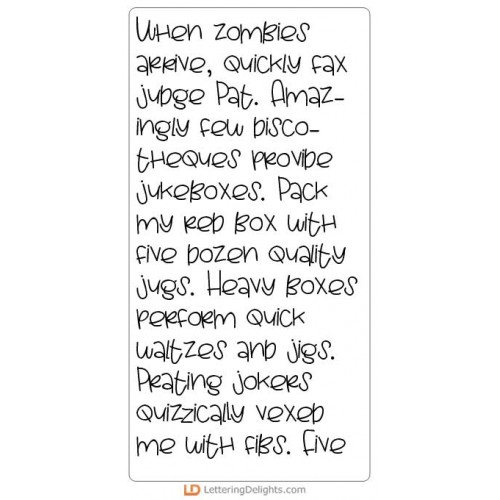 When zombies
arrive, quickly fax
judge Pat. Amaz-
ingly few disco-
theques provide
jukeboxes. Pack
my red box with
five dozen quality
jugs. Heavy boxes
perform quick
waltzes and jigs.
Prating jokers
quizzically vexed
me with fibs. Five
LD LetteringDelights.com